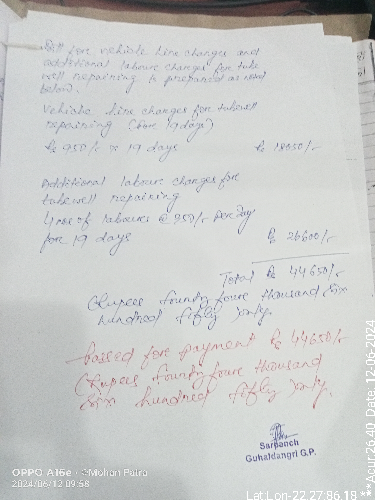 Bill for vehicle hire charges and
additional labour charges for tube
well repairing is prepared as noted
below.
Vehicle hire charges for tubewell
repairing (for 19 days)
Rs 950/- x 19 days Rs 18050/-
Additional labour charges for
tubewell repairing
4 nos of labours @ 350/- per day
for 19 days Rs 26600/-
Total Rs 44650/-
(Rupees fourty foure thousand six
hundred fifty) only.
Passed for payment Rs 44650/-
(Rupees fourty foure thousand
six hundred fifty) only.
Sarpanch
Guhaldangri G.P.
OPPO A16e Mohan Patra
2024/06/12 09:58
Lat Lon-22 27:86 18 ***Acur:26.40 Date 12-06-2024